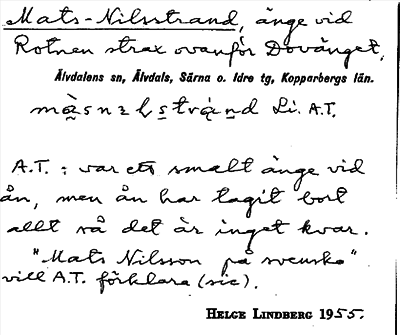 Mats-Nilsstrand, änge vid
Rotnen strax ovanför Dovänget,
Älvdalens sn, Älvdals, Särna o. Idre tg, Kopparbergs län.
Li. A.T.
A.T.: var ett smalt änge vid
ån, men ån har tagit bort
allt så det är inget kvar.
"Mats Nilsson på svenska"
vill A.T. förklara (sic).
HELGE LINDBERG 1955.